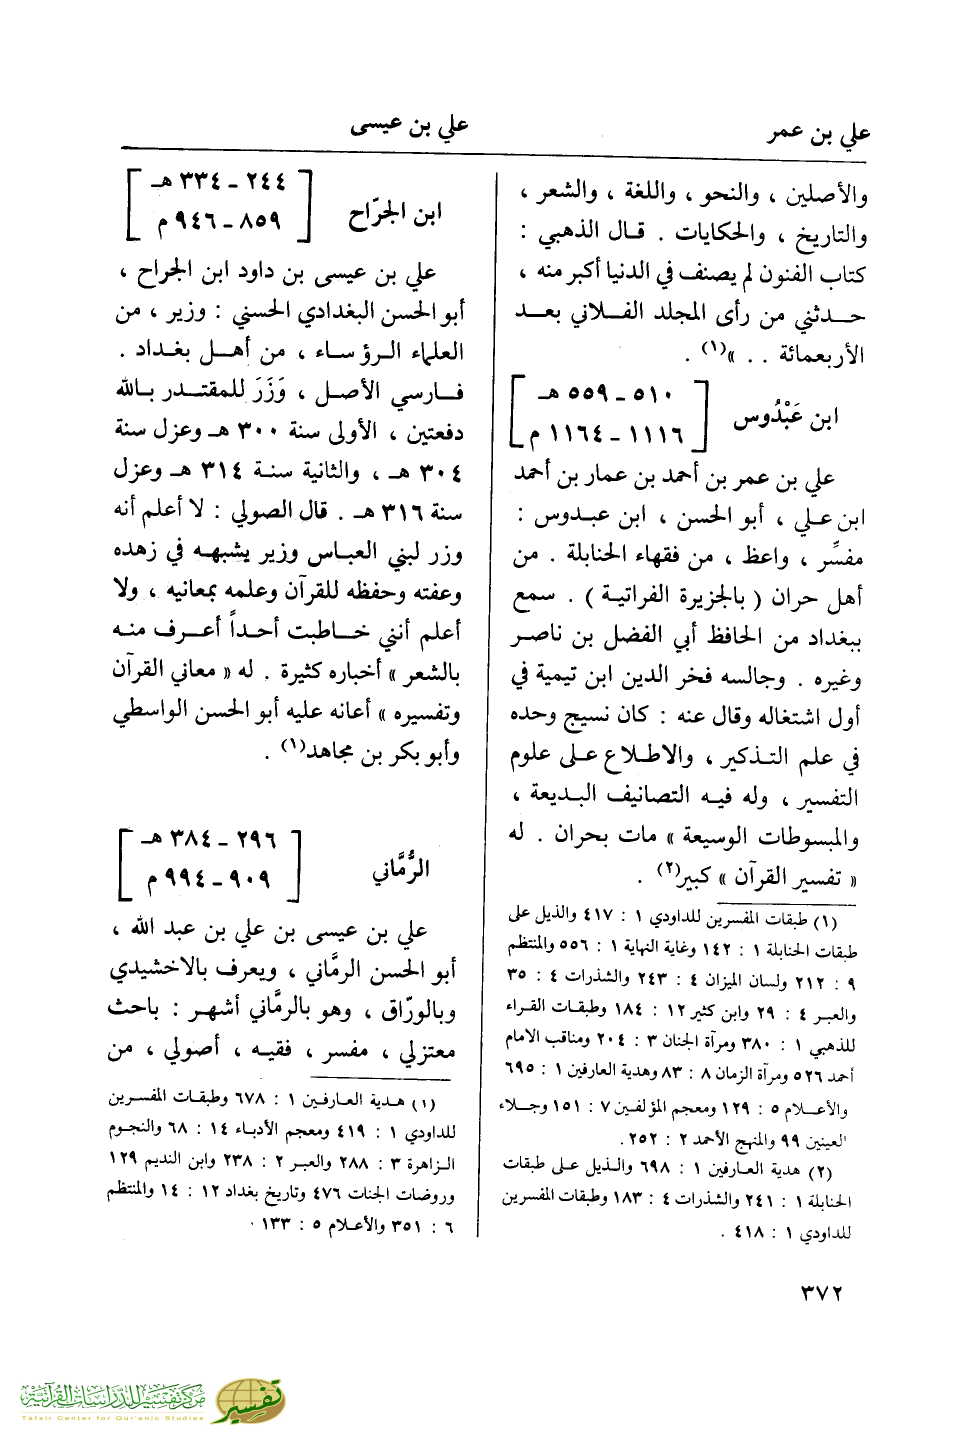 علي بن عمر
علي بن عيسى
والأصلين ، والنحو ، واللغة ، والشعر ،
والتاريخ ، والحكايات . قال الذهبي :
كتاب الفنون لم يصنف في الدنيا أكبر منه ،
حدثني من رأى المجلد الفلاني بعد
الأربعمائة . . »(١) .
ابن عَبْدُوس
٥١٠ - ٥٥٩ هـ
١١١٦ - ١١٦٤ م
علي بن عمر بن أحمد بن عمار بن أحمد
ابن علي ، أبو الحسن ، ابن عبدوس :
مفسِّر ، واعظ ، من فقهاء الحنابلة . من
أهل حران ( بالجزيرة الفراتية ) . سمع
ببغداد من الحافظ أبي الفضل بن ناصر
وغيره . وجالسه فخر الدين ابن تيمية في
أول اشتغاله وقال عنه : كان نسيج وحده
في علم التذكير ، والاطلاع على علوم
التفسير ، وله فيه التصانيف البديعة ،
والمبسوطات الوسيعة » مات بحران . له
« تفسير القرآن » كبير(٢) .
(١) طبقات المفسرين للداودي ١ : ٤١٧ والذيل على
طبقات الحنابلة ١ : ١٤٢ وغاية النهاية ١ : ٥٥٦ والمنتظم
٩ : ٢١٢ ولسان الميزان ٤ : ٢٤٣ والشذرات ٤ : ٣٥
والعبر ٤ : ٢٩ وابن كثير ١٢ : ١٨٤ وطبقات القراء
للذهبي ١ : ٣٨٠ ومرآة الجنان ٣ : ٢٠٤ ومناقب الامام
أحمد ٥٢٦ ومرآة الزمان ٨ : ٨٣ وهدية العارفين ١ : ٦٩٥
والأعلام ٥ : ١٢٩ ومعجم المؤلفين ٧ : ١٥١ وجلاء
العينين ٩٩ والمنهج الأحمد ٢ : ٢٥٢ .
(٢) هدية العارفين ١ : ٦٩٨ والذيل على طبقات
الحنابلة ١ : ٢٤١ والشذرات ٤ : ١٨٣ وطبقات المفسرين
للداودي ١ : ٤١٨ .
ابن الجرّاح
٢٤٤ - ٣٣٤ هـ
٨٥٩ - ٩٤٦ م
علي بن عيسى بن داود ابن الجراح ،
أبو الحسن البغدادي الحسني : وزير ، من
العلماء الرؤساء ، من أهل بغداد .
فارسي الأصل ، وَزَرَ للمقتدر بالله
دفعتين ، الأولى سنة ٣٠٠ هـ وعزل سنة
٣٠٤ هـ ، والثانية سنة ٣١٤ هـ وعزل
سنة ٣١٦ هـ . قال الصولي : لا أعلم أنه
وزر لبني العباس وزير يشبهه في زهده
وعفته وحفظه للقرآن وعلمه بمعانيه ، ولا
أعلم أنني خاطبت أحداً أعرف منه
بالشعر » أخباره كثيرة . له « معاني القرآن
وتفسيره » أعانه عليه أبو الحسن الواسطي
وأبو بكر بن مجاهد(١) .
الرُّمَّاني
٢٩٦ - ٣٨٤ هـ
٩٠٩ - ٩٩٤ م
علي بن عيسى بن علي بن عبد الله ،
أبو الحسن الرمَّاني ، ويعرف بالاخشيدي
وبالورّاق ، وهو بالرمَّاني أشهر : باحث
معتزلي ، مفسر ، فقيه ، أصولي ، من
(١) هدية العارفين ١ : ٦٧٨ وطبقات المفسرين
للداودي ١ : ٤١٩ ومعجم الأدباء ١٤ : ٦٨ والنجوم
الزاهرة ٣ : ٢٨٨ والعبر ٢ : ٢٣٨ وابن النديم ١٢٩
وروضات الجنات ٤٧٦ وتاريخ بغداد ١٢ : ١٤ والمنتظم
٦ : ٣٥١ والأعلام ٥ : ١٣٣ .
٣٧٢
مركز تفسير للدراسات القرآنية
Tafsir Center for Qur'anic Studies
تفسير